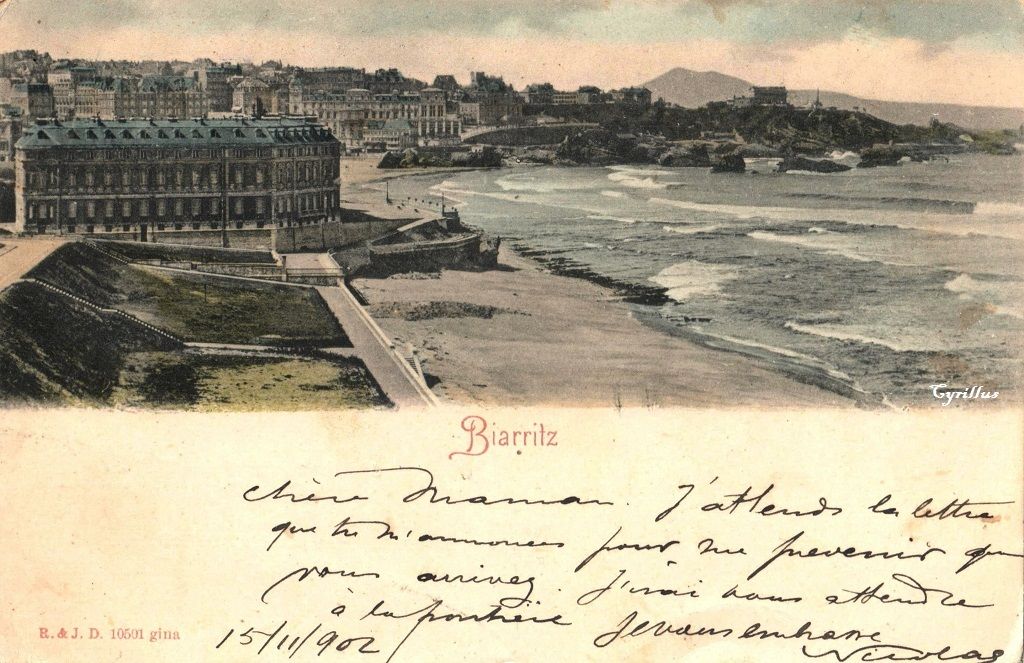 Cyrillus
Biarritz
chère Maman. J'attends la lettre
que tu m'annonces pour me prévenir que
vous arrivez. J'irai vous attendre
à la frontière Je vous embrasse
15/11/902 Nicolas
R. & J. D. 10501 gina